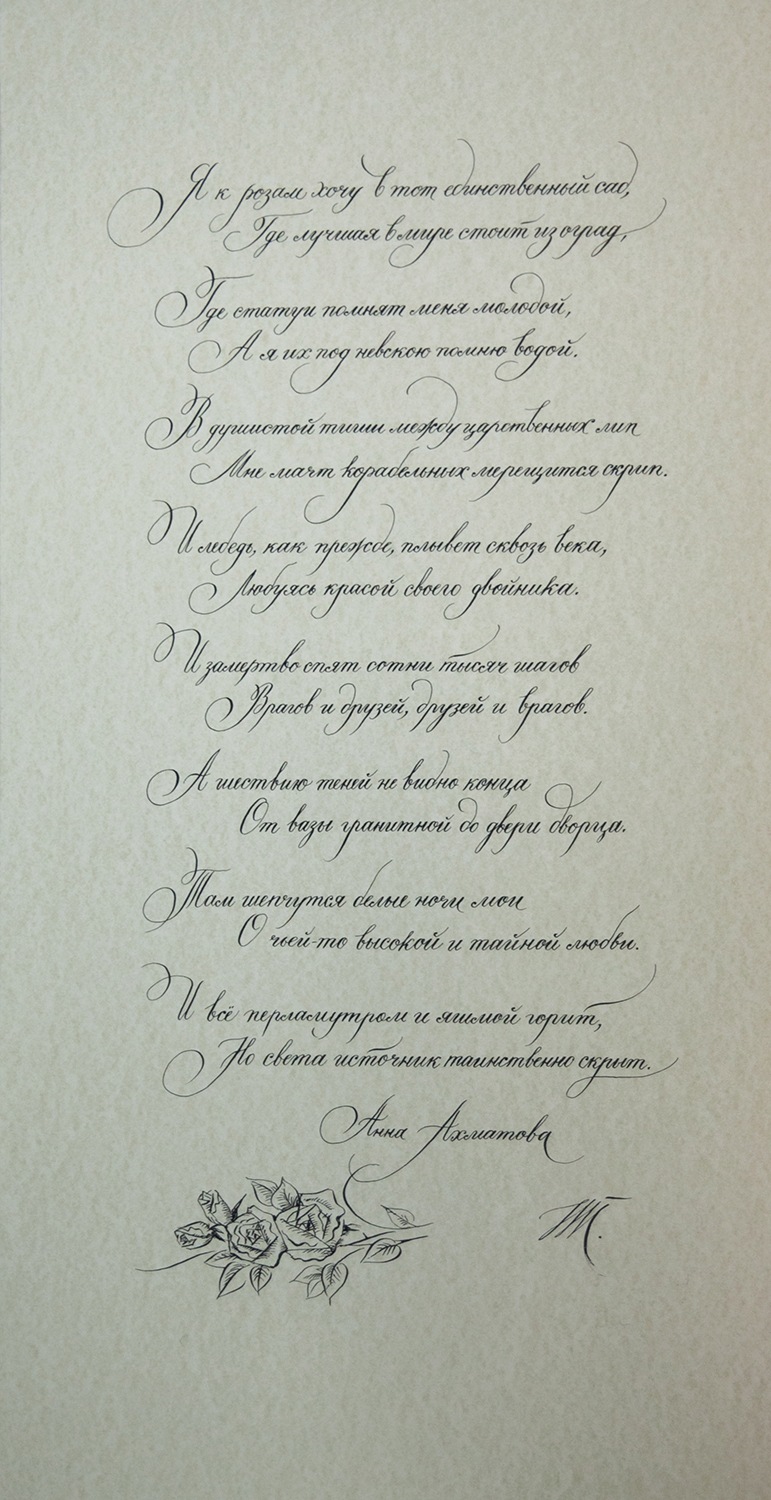 Я к розам хочу в тот единственный сад,
Где лучшая в мире стоит из оград,
Где статуи помнят меня молодой,
А я их под невскою помню водой.
В душистой тиши между царственных лип
Мне мачт корабельных мерещится скрип.
И лебедь, как прежде, плывет сквозь века,
Любуясь красой своего двойника.
И замертво спят сотни тысяч шагов
Врагов и друзей, друзей и врагов.
А шествию теней не видно конца
От вазы гранитной до двери дворца.
Там шепчутся белые ночи мои
О чьей-то высокой и тайной любви.
И всё перламутром и яшмой горит,
Но света источник таинственно скрыт.
Анна Ахматова